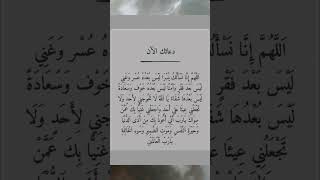 دعائك الآن
اللَّهُمَّ إِنَّا نَسْأَلُكَ يُسْرًا لَيْسَ بَعْدَهُ عُسْر وَغَنِيً
لَيْسَ بَعْدَ فَقْر وَأَمْنًا لَيْسَ بَعْدَهُ خَوْف وَسَعَادَةً
لَيْسَ بَعْدَهَا شَقَاء يَا اللهُ لَا تُحْوِجْنِي لِأَحَدٍ وَلَا
تَجْعَلْنِي عِبْئًا عَلَى أَحَدٍ وَاجْعَلْنِي غَنِيًا بِكَ عَمَّنْ
سِوَاكَ يَارَب أَنِّي أَعُوذُ بِكَ مِنْ أَذَى الدُّنْيَا
وَحُزْنِ النَّفْسِ وَمَوْتِ الضَّمِيرِ وَسُوءِ الْخَاتِمَة
يَارَبَّ الْعَالَمِين